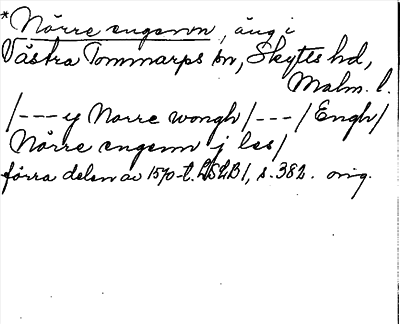 *Nörre engenn, äng i
Västra Tommarps sn, Skytts hd,
Malm. l.
/--- y Norre wongh /--- / Engh/
Nörre engenn j les/
förra delen av 1570-t. LSLB 1, s. 382. orig.